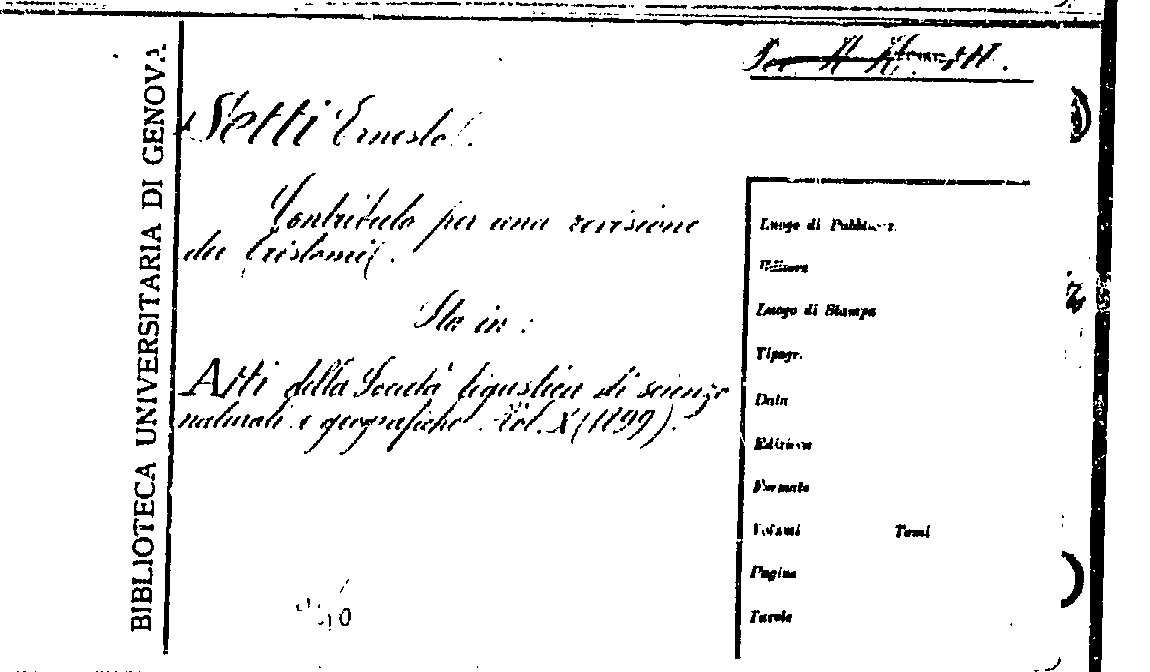 BIBLIOTECA UNIVERSITARIA DI GENOVA
Setti Ernesto.
Contributo per una revisione
dei Tristomi.
Sta in:
Atti della Società ligustica di scienze
naturali e geografiche. Vol. X (1899).
Luogo di
Editore
Luogo di Stampa
Tipogr.
Data
Edizione
Formato
Volumi Tomi
Pagine
Tavole